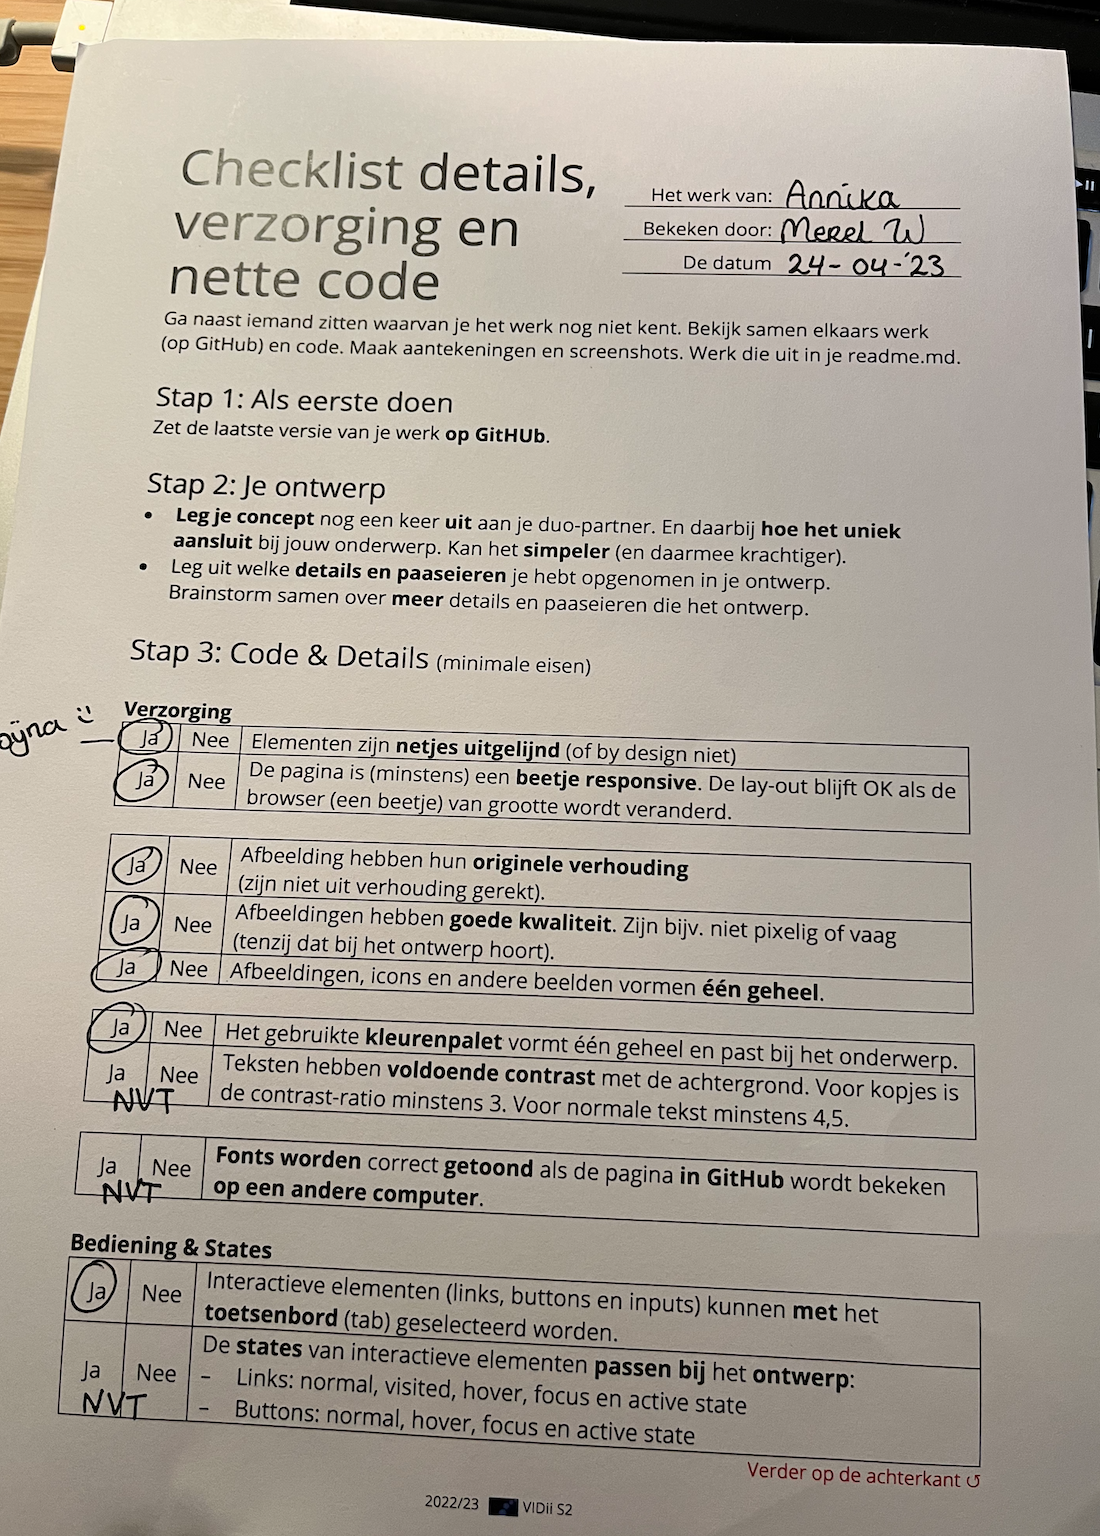 Checklist details,
verzorging en
nette code
Het werk van: Annika
Bekeken door: Merel W
De datum 24-04-'23
Ga naast iemand zitten waarvan je het werk nog niet kent. Bekijk samen elkaars werk
(op GitHub) en code. Maak aantekeningen en screenshots. Werk die uit in je readme.md.
Stap 1: Als eerste doen
Zet de laatste versie van je werk op GitHUb.
Stap 2: Je ontwerp
• Leg je concept nog een keer uit aan je duo-partner. En daarbij hoe het uniek
aansluit bij jouw onderwerp. Kan het simpeler (en daarmee krachtiger).
• Leg uit welke details en paaseieren je hebt opgenomen in je ontwerp.
Brainstorm samen over meer details en paaseieren die het ontwerp.
Stap 3: Code & Details (minimale eisen)
Verzorging
Ja Nee Elementen zijn netjes uitgelijnd (of by design niet)
Ja Nee De pagina is (minstens) een beetje responsive. De lay-out blijft OK als de
browser (een beetje) van grootte wordt veranderd.
Ja Nee Afbeelding hebben hun originele verhouding
(zijn niet uit verhouding gerekt).
Ja Nee Afbeeldingen hebben goede kwaliteit. Zijn bijv. niet pixelig of vaag
(tenzij dat bij het ontwerp hoort).
Ja Nee Afbeeldingen, icons en andere beelden vormen één geheel.
Ja Nee Het gebruikte kleurenpalet vormt één geheel en past bij het onderwerp.
Ja Nee Teksten hebben voldoende contrast met de achtergrond. Voor kopjes is
NVT de contrast-ratio minstens 3. Voor normale tekst minstens 4,5.
Ja Nee Fonts worden correct getoond als de pagina in GitHub wordt bekeken
NVT op een andere computer.
Bediening & States
Ja Nee Interactieve elementen (links, buttons en inputs) kunnen met het
toetsenbord (tab) geselecteerd worden.
De states van interactieve elementen passen bij het ontwerp:
Ja Nee – Links: normal, visited, hover, focus en active state
NVT – Buttons: normal, hover, focus en active state
Verder op de achterkant ↺
2022/23 VIDii S2